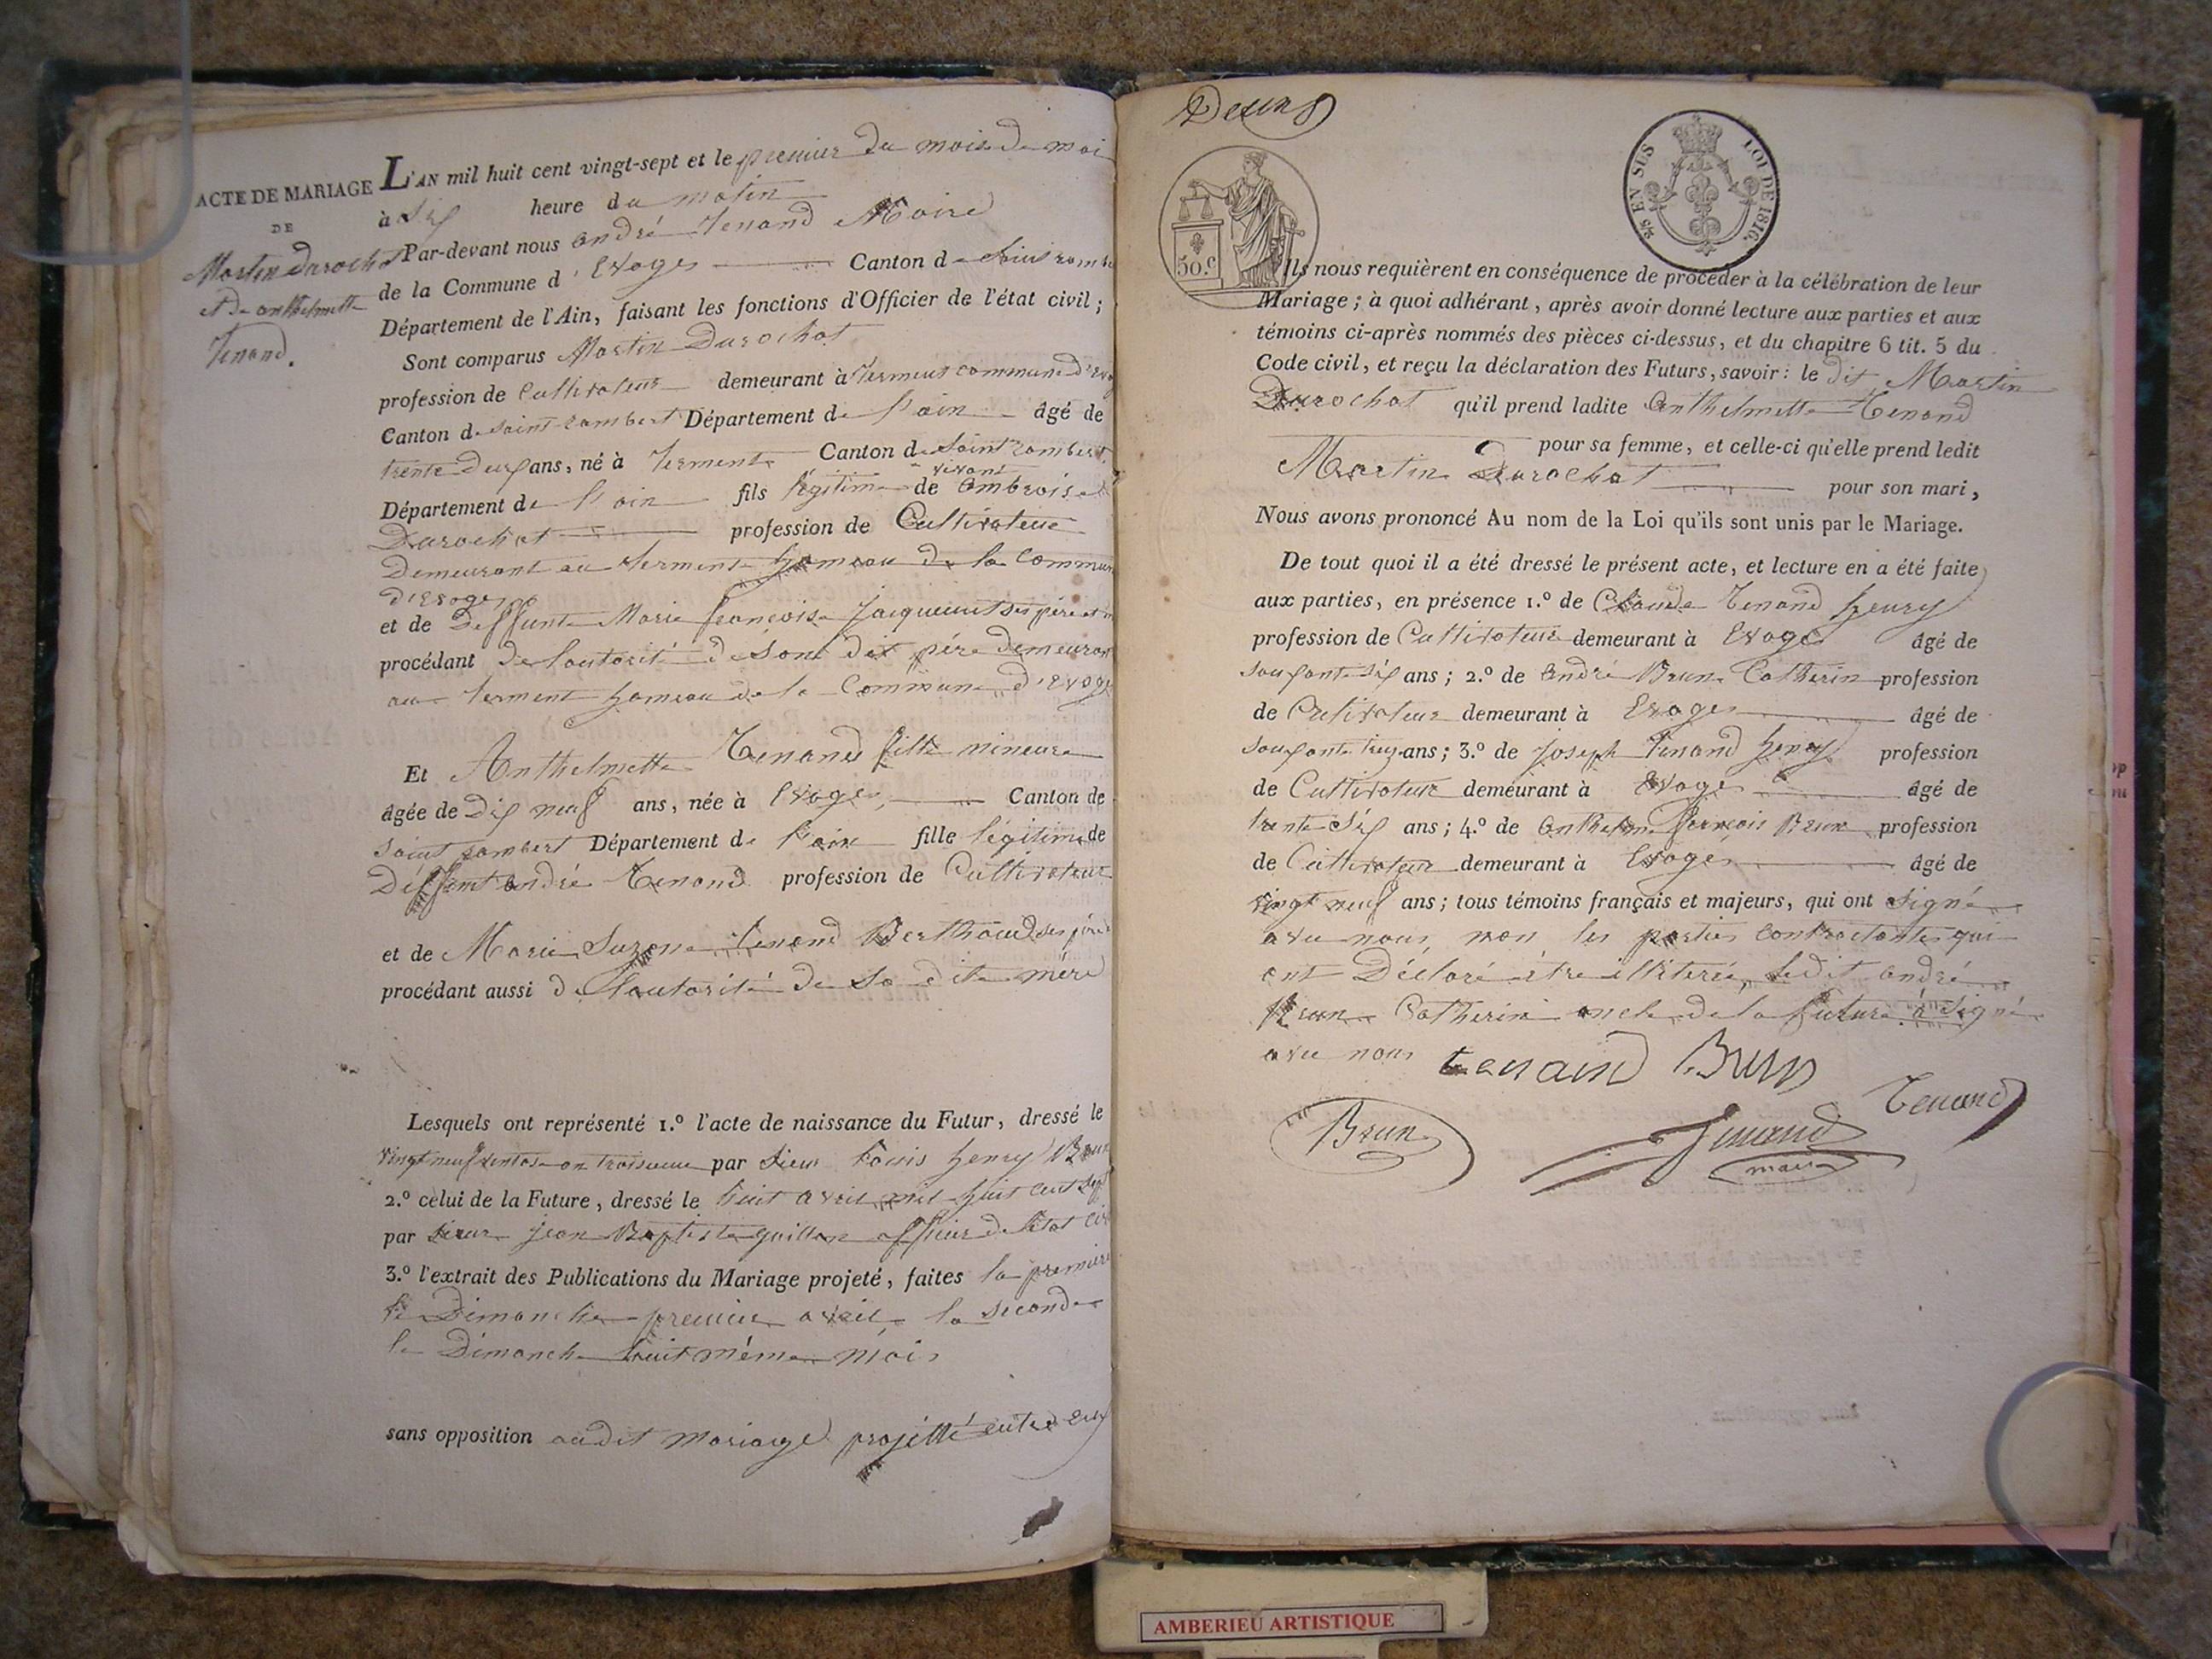 ACTE DE MARIAGE
DE
Martin Durochat
et de anthelmette
Tenand.
L'AN mil huit cent vingt-sept et le premier du mois de mai
à Six heure du matin
Par-devant nous andré Tenand Maire
de la Commune d'Evoges Canton de Saint rambert
Département de l'Ain, faisant les fonctions d'Officier de l'état civil ;
Sont comparus Martin Durochat
profession de Cultivateur demeurant à terment commune d'Evoges
Canton de saint rambert Département de l'ain âgé de
trente deux ans, né à terment Canton de Saint rambert
vivant
Département de l'ain fils légitime de ambroise
Durochat profession de Cultivateur
Demeurant au terment hameau de la Commune
d'Evoges
et de Deffunte Marie françoise jacquemet ses père et
procédant de l'autorité de son dit père demeurant
au terment hameau de la Commune d'Evoges
Et Anthelmette Tenand fille mineure
âgée de Dix neuf ans, née à Evoges Canton de
saint rambert Département de l'ain fille légitime de
Déffunt andré Tenand profession de Cultivateur
et de Marie Suzane tenand Berthaud ses père
procédant aussi de l'autorité de sa dite mère
Lesquels ont représenté 1.º l'acte de naissance du Futur, dressé le
vingt neuf ventose an troisieme par Sieur Louis henry Brun
2.º celui de la Future, dressé le huit avril mil huit cent sept
par Sieur jean Baptiste guillon officier de l'état civil
3.º l'extrait des Publications du Mariage projeté, faites la premiere
le Dimanche premier avril, la seconde
le Dimanche huit même mois
sans opposition audit mariage projetté entre eux
Deux
50.c
5/5 EN SUS
LOI DE 1816.
Ils nous requièrent en conséquence de procéder à la célébration de leur
Mariage ; à quoi adhérant, après avoir donné lecture aux parties et aux
témoins ci-après nommés des pièces ci-dessus, et du chapitre 6 tit. 5 du
Code civil, et reçu la déclaration des Futurs, savoir : le dit Martin
Durochat qu'il prend ladite Anthelmette Tenand
pour sa femme, et celle-ci qu'elle prend ledit
Martin Durochat pour son mari,
Nous avons prononcé Au nom de la Loi qu'ils sont unis par le Mariage.
De tout quoi il a été dressé le présent acte, et lecture en a été faite
aux parties, en présence 1.º de Claude Tenand henry
profession de Cultivateur demeurant à Evoges âgé de
souxante six ans ; 2.º de André Brun Catherin profession
de Cultivateur demeurant à Evoges âgé de
souxante treize ans ; 3.º de joseph Tenand henry profession
de Cultivateur demeurant à Evoges âgé de
trente Six ans ; 4.º de Anthelme françois Brun profession
de Cultivateur demeurant à Evoges âgé de
vingt neuf ans ; tous témoins français et majeurs, qui ont signé
avec nous, non les parties contractantes qui
ont Déclaré être illiterée, ledit andré
Brun Catherin oncle de la future à Signé
avec nous tenand Brun
Tenand
Brun
Tenand
maire
AMBERIEU ARTISTIQUE